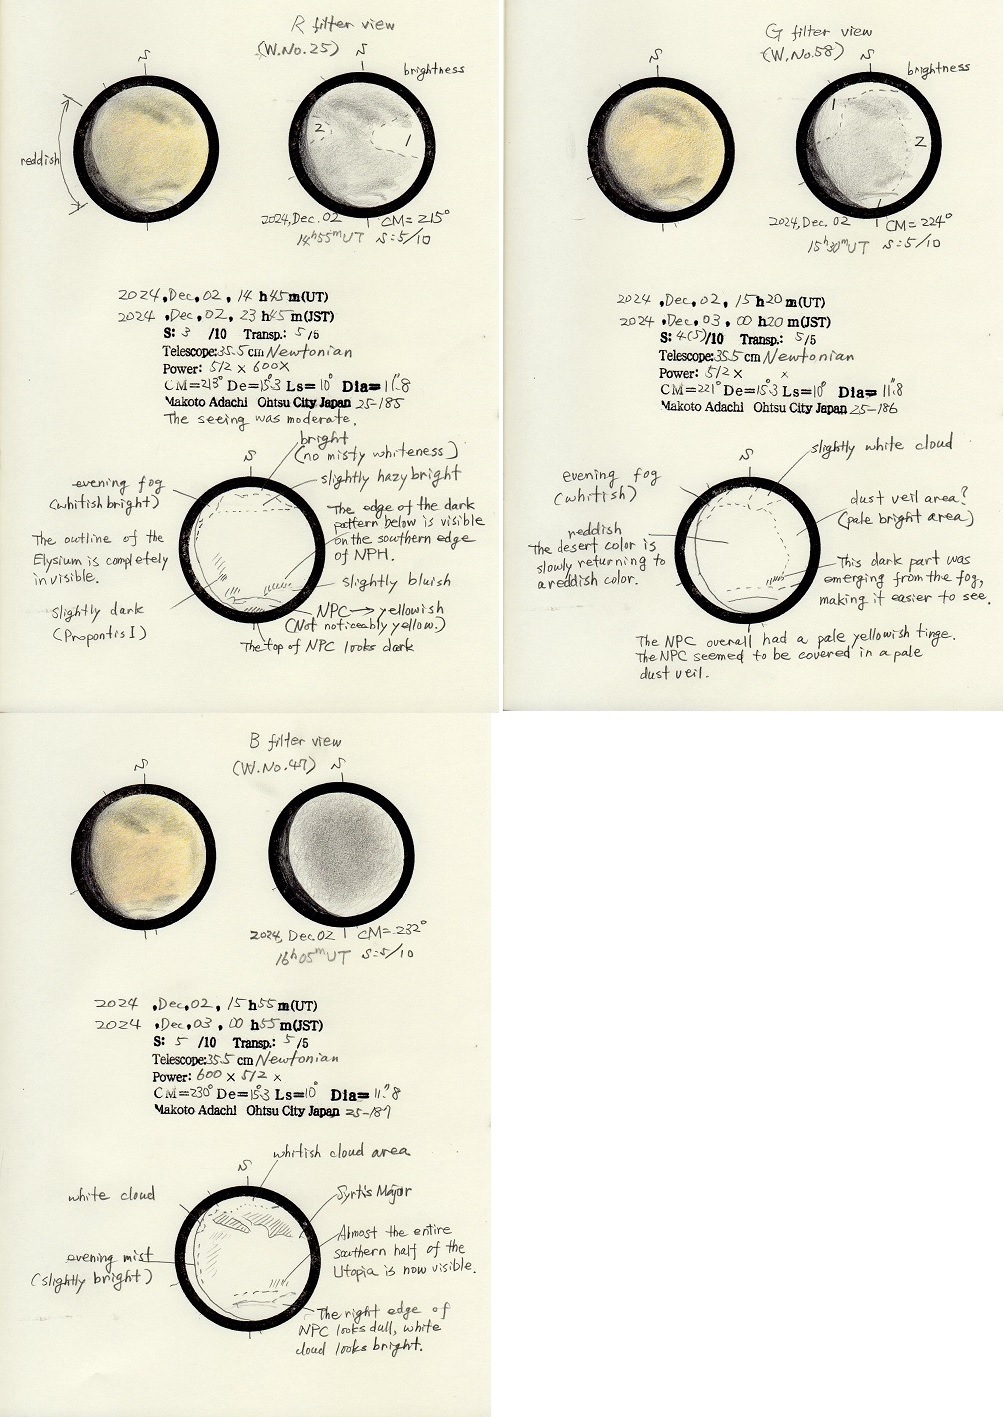 R filter view
(W.No.25)
S
S
brightness
reddish
2
1
2024, Dec. 02 CM=215°
14h55mUT S:5/10
2024, Dec, 02, 14 h45m(UT)
2024, Dec, 02, 23 h45m(JST)
S: 3 /10 Transp.: 5/5
Telescope:35.5cm Newtonian
Power: 512 x 600X
CM=213° De=15.°3 Ls=10° Dia=11."8
Makoto Adachi Ohtsu City Japan 25-185
The seeing was moderate.
bright
(no misty whiteness)
S
slightly hazy bright
evening fog
(whitish bright)
The edge of the dark
pattern below is visible
on the southern edge
of NPH.
The outline of the
Elysium is completely
invisible.
slightly bluish
slightly dark
(Propontis I)
NPC→yellowish
(Not noticeably yellow.)
The top of NPC looks dark
G filter view
(W.No.58)
S
S
brightness
1
2
1
2024, Dec. 02 CM=224°
15h30mUT S:5/10
2024, Dec, 02, 15 h20m(UT)
2024, Dec, 03, 00 h20m(JST)
S: 4(5)/10 Transp.: 5/5
Telescope:35.5cm Newtonian
Power: 512 x x
CM=221° De=15.°3 Ls=10° Dia=11."8
Makoto Adachi Ohtsu City Japan 25-186
S
slightly white cloud
evening fog
(whitish)
dust veil area?
(pale bright area)
reddish
The desert color is
slowly returning to
a reddish color.
This dark part was
emerging from the fog,
making it easier to see.
The NPC overall had a pale yellowish tinge.
The NPC seemed to be covered in a pale
dust veil.
B filter view
(W.No.47)
S
S
2024, Dec. 02 CM=232°
16h05mUT S=5/10
2024, Dec, 02, 15 h55m(UT)
2024, Dec, 03, 00 h55m(JST)
S: 5 /10 Transp.: 5/5
Telescope:35.5cm Newtonian
Power: 600 x 512 x
CM=230° De=15.°3 Ls=10° Dia=11."8
Makoto Adachi Ohtsu City Japan 25-187
whitish cloud area
S
white cloud
Syrtis Major
Almost the entire
southern half of the
Utopia is now visible.
evening mist
(slightly bright)
The right edge of
NPC looks dull, white
cloud looks bright.